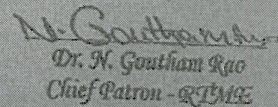 N. Goutham Rao
Dr. N. Goutham Rao
Chief Patron - RTME